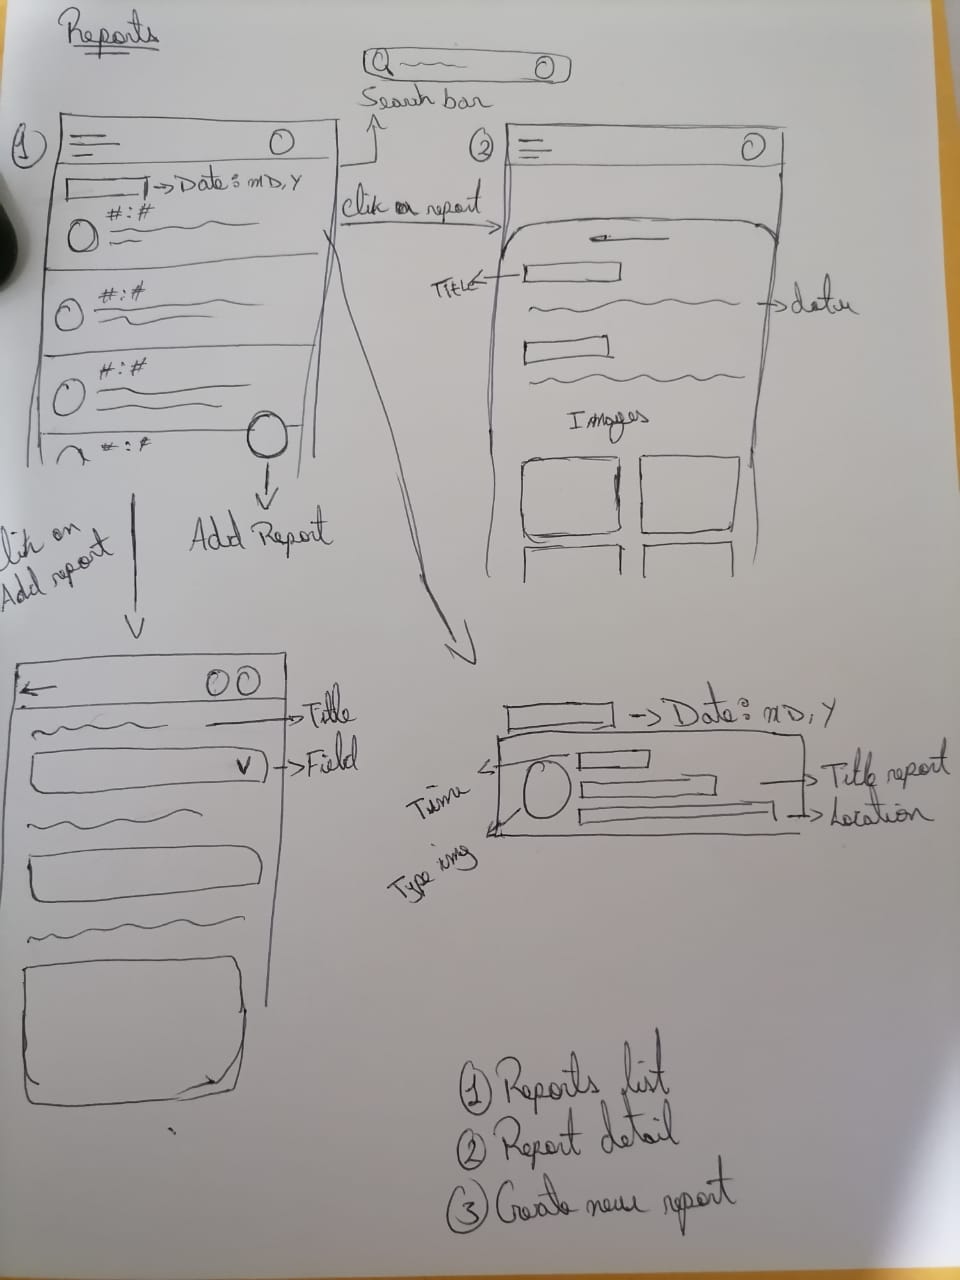 Reports
Search bar
1
2
Date: MD, Y
#:#
Click on report
#:#
#:#
#:#
Title
data
Images
Click on
Add report
Add Report
Title
Field
Date: MD, Y
Time
Title report
Location
Type img
1 Reports list
2 Report detail
3 Create new report